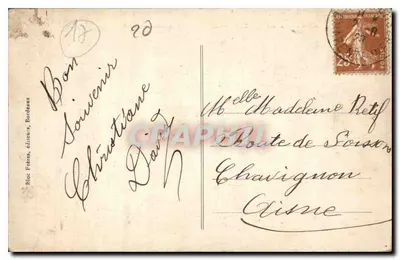 17
20
Bon
Souvenir
Christiane
David
Bloc Frères, éditeurs, Bordeaux
Melle Madeleine Retif
Route de Soissons
Chavignon
Aisne